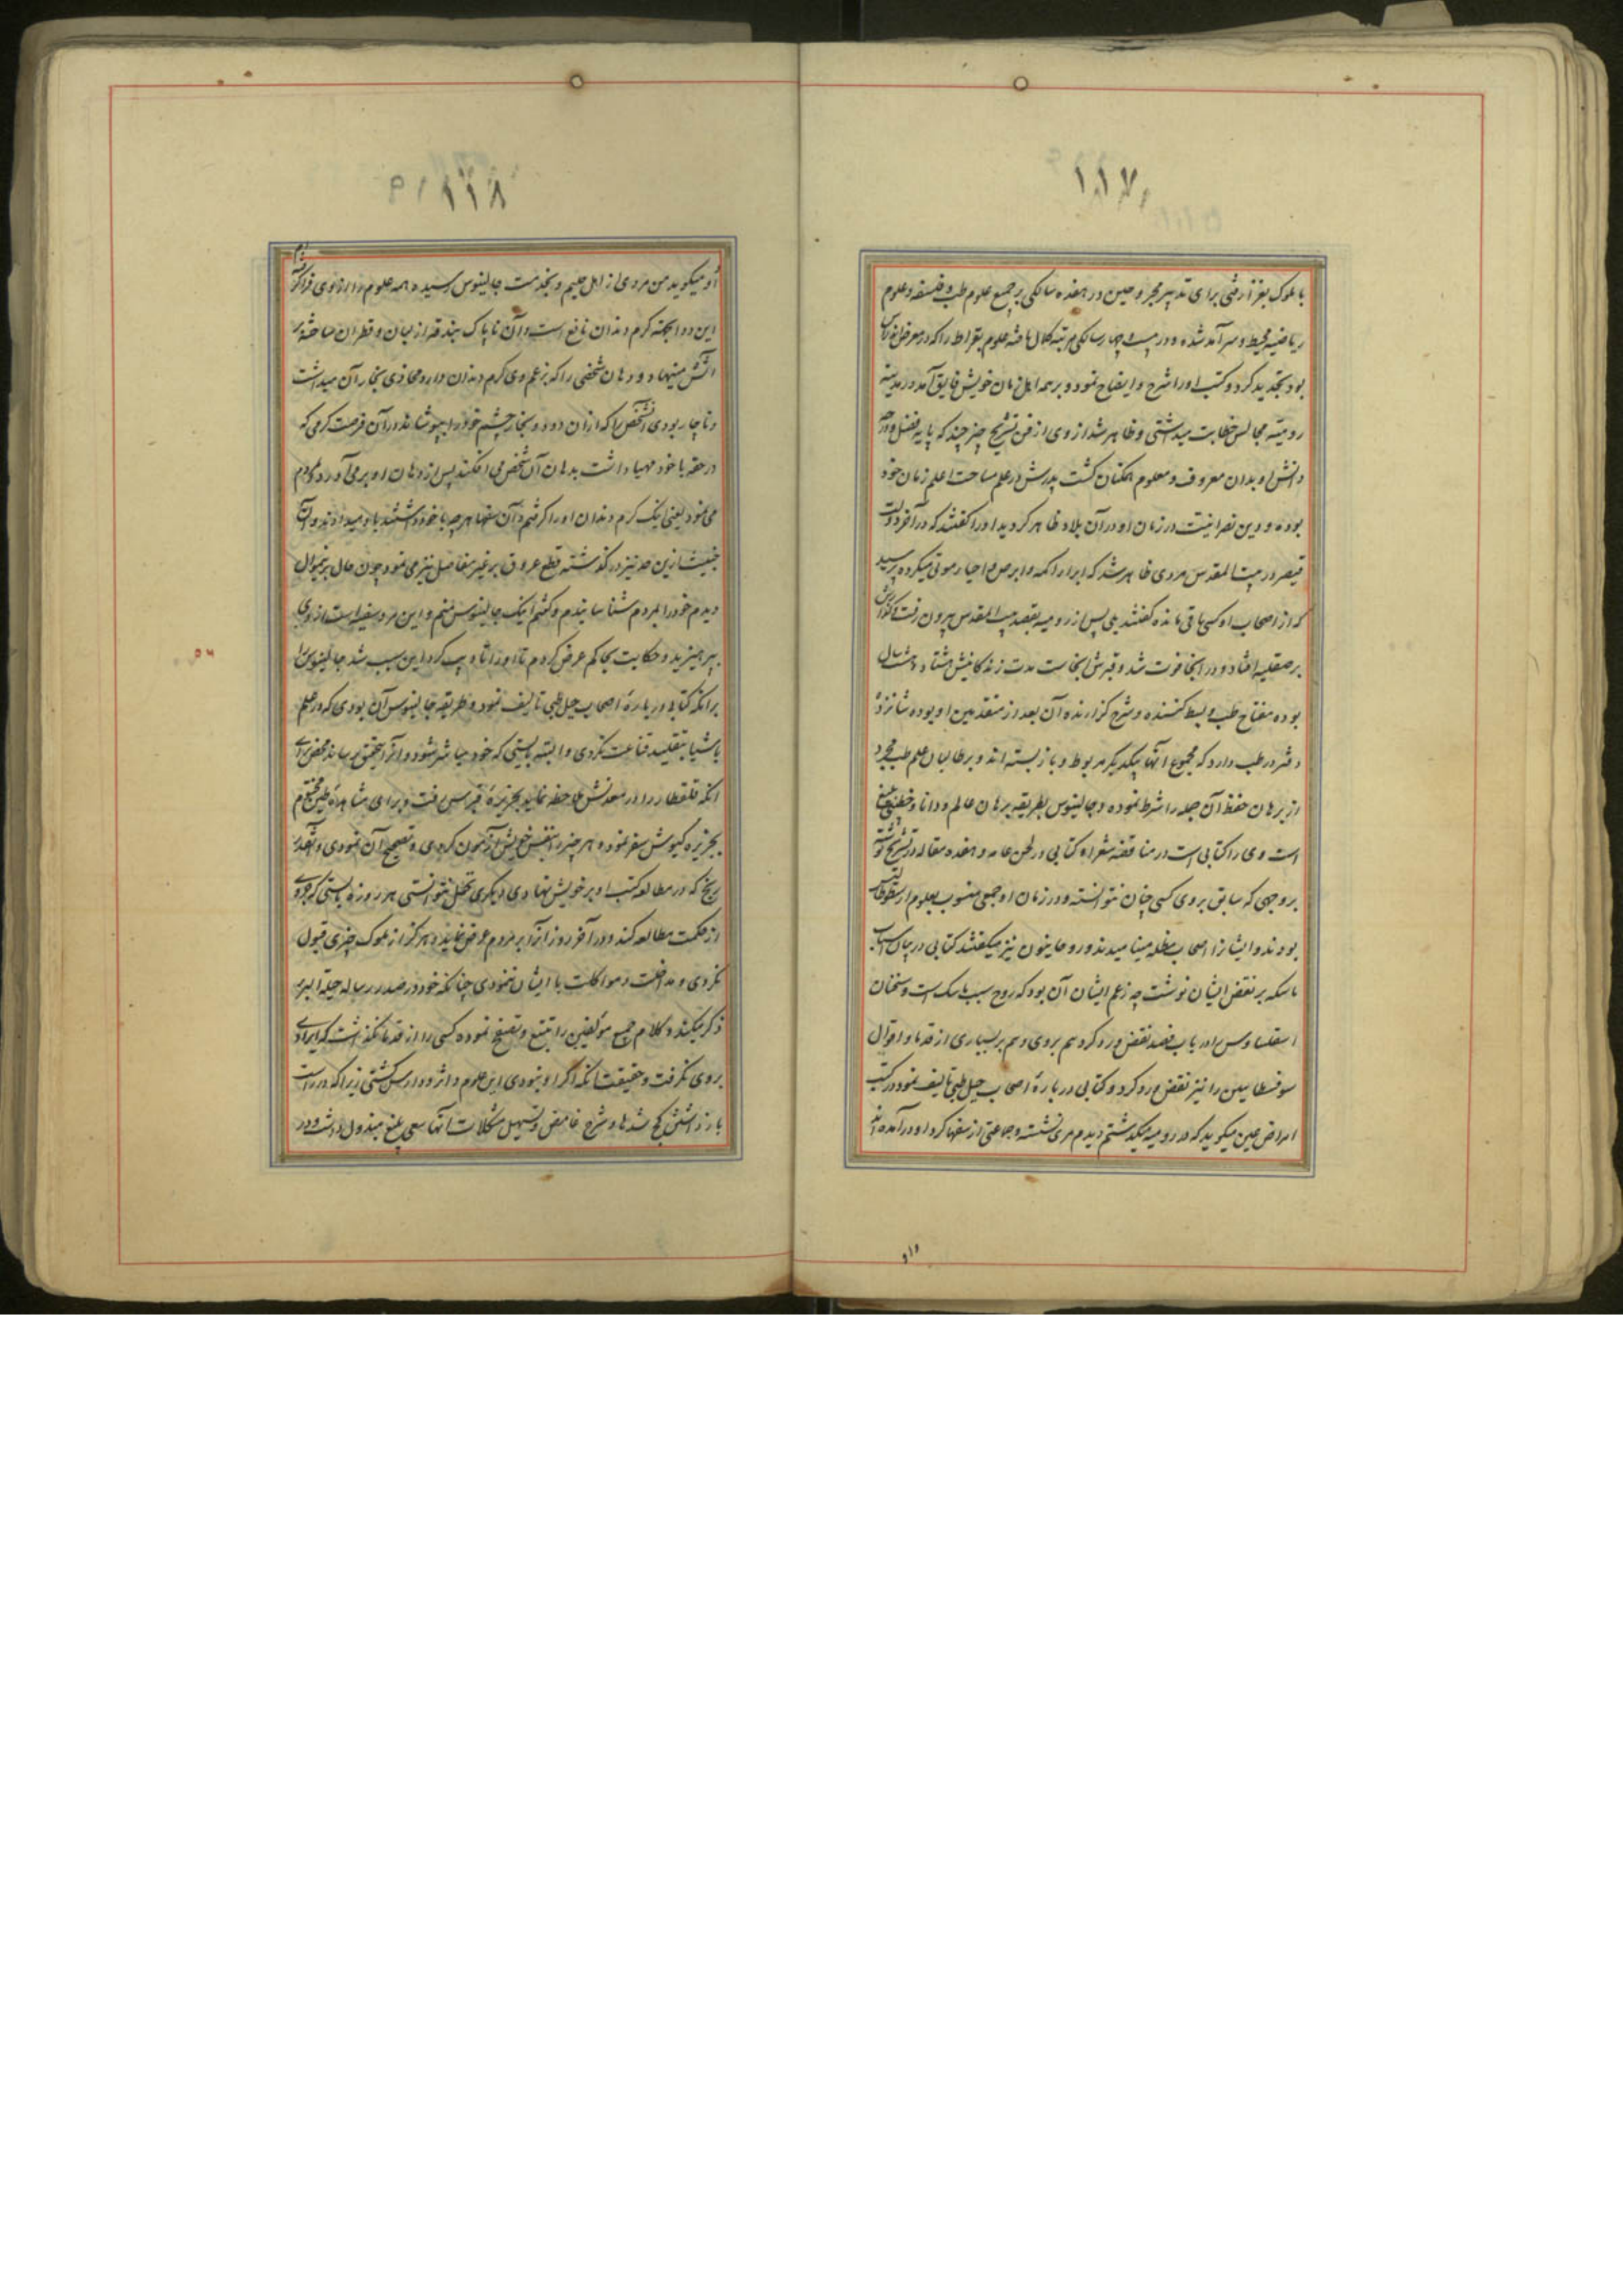 ۱۱۷
با ملوک بغزا رفتی برای تدبیر مجروحین در هفده سالکی بر جمیع علوم طب و فلسفه و علوم
ریاضیه محیط و سرآمد شده و در بیست و چهار سالکی مرتبه کمال یافته علوم بقراط را که در معرض اندراس
بود تجدید کرد و کتب اورا شرح و ایضاح نمود و بر همه اهل زمان خویش فایق آمد در مدینه
رومیه مجالس خطابت میداشتی و ظاهر شد از وی از فن تشریح چیزی چند که پایه فضل و
دانش او بدان معروف و معلوم همکنان کشت پدرش در علم مساحت اعلم زمان خود
بوده و دین نصرانیت در زمان او در آن بلاد ظاهر کردید اورا کفتند که در آخر دولت
قیصر در بیت المقدس مردی ظاهر شد که ابراء اکمه و ابرص و احیاء موتی میکرده پرسید
که از اصحاب او کسی باقی مانده کفتند بلی پس از رومیه بقصد بیت المقدس بیرون رفت
بر صقلیه افتاد و در آنجا فوت شد و قبرش آنجاست مدت زندکانیش هشتاد و هشت سال
بوده مفتاح طب و بسط کننده و شرح کزارنده آن بعد از متقدمین او بوده شانزده
دفتر در طب دارد که مجموع آنها بیکدیکر مربوط و باز بسته اند و بر طالبان علم طب
از برهان حفظ آن جمله را شرط نموده و جالینوس بطریقه برهان عالم و دانا و خطیبی بلیغ
است وی را کتابی است در مناقضه شعرا و کتابی در لحن عامه و هفده مقاله در تشریح نوشته
بر وجهی که سابق بر وی کسی چنان نتوانسته و در زمان او جمعی منسوب بعلوم ارسطوطالیس
بودند و ایشانرا اصحاب مظله مینامیدند و روحانیون نیز میکفتند کتابی در بیان اسباب
ماسکه بر نقض ایشان نوشت چه زعم ایشان آن بود که روح سبب ماسک است و سخنان
در باب فصد نقض و رد کرد هم بر وی و هم بر بسیاری از قدما و اقوال
سوفسطایین را نیز نقض و رد کرد و کتابی در باره اصحاب حیل طبی تالیف نمود در کتب
امراض عین میکوید که در رومیه میکذشتم دیدم مردی نشسته و جماعتی از سفها کرد او در آمده اند
واو
۱۱۸
واو میکوید من مردی از اهل حلبم و بخدمت جالینوس رسیده همه علوم را از وی فرا کرفته ام
این دوا بجهت کرم دندان نافع است و آن ناپاک بندقه از لبان و قطران ساخته بر
آتش مینهاد و دهان شخصی را که بزعم وی کرم دندان دارد محاذی بخار آن میداشت
و ناچار بودی آن شخص را که از آن دود و بخار چشم خود را بپوشاند در آن فرصت کرمی که
در حقه با خود مهیا داشت بدهان آن شخص می افکند پس از دهان او بر می آورد و بمردم
می نمود یعنی اینک کرم دندان اورا کرفتم و آن سفها هر چه با خود داشتند باو میدادند و آن
خبیث ازین حد نیز در کذشته قطع عروق بر غیر مفاصل نیز می نمود چون حال بر نیمنوال
دیدم خود را بمردم شناسانیدم و کفتم اینک جالینوس منم و این مرد سفیه است از وی
بپرهیزید و حکایت بحاکم عرض کردم تا اورا تادیب کرد این سبب شد جالینوس را
برآنکه کتابی در باره اصحاب حیل طبی تالیف نمود و طریقه جالینوس آن بودی که در علم
باشیا بتقلید قناعت نکردی و البته بایستی که خود مباشر شود و آنرا بتحقیق رساند محض برای
آنکه قلقطار را در معدنش ملاحظه نماید بجزیره قبرس رفت و برای مشاهده طین مختوم
بجزیره لمیوش سفر نمود و هر چیز را بنفس خویش آزمون کردی و تصحیح آن نمودی و آنقدر
رنج که در مطالعه کتب او بر خویش نهادی دیکری تحمل نتوانستی هر روزه بایستی که جزوی
از حکمت مطالعه کند و در آخر روز آنرا بر مردم عرض نماید و هرکز از ملوک چیزی قبول
نکردی و مداخلت و مواکلت با ایشان ننمودی چنانکه خود در صدر رساله حیلة البرء
ذکر میکند و کلام جمیع مؤلفین را تتبع و تنقیح نموده کسی را از قدما نکذاشت که ایرادی
بر وی نکرفت و حقیقت آنکه اکر او نبودی این علوم داثر و دارس کشتی زیرا که در راست
باز داشتن کج شدها و شرح غامض و تسهیل مشکلات آنها سعی بلیغ مبذول داشت و در